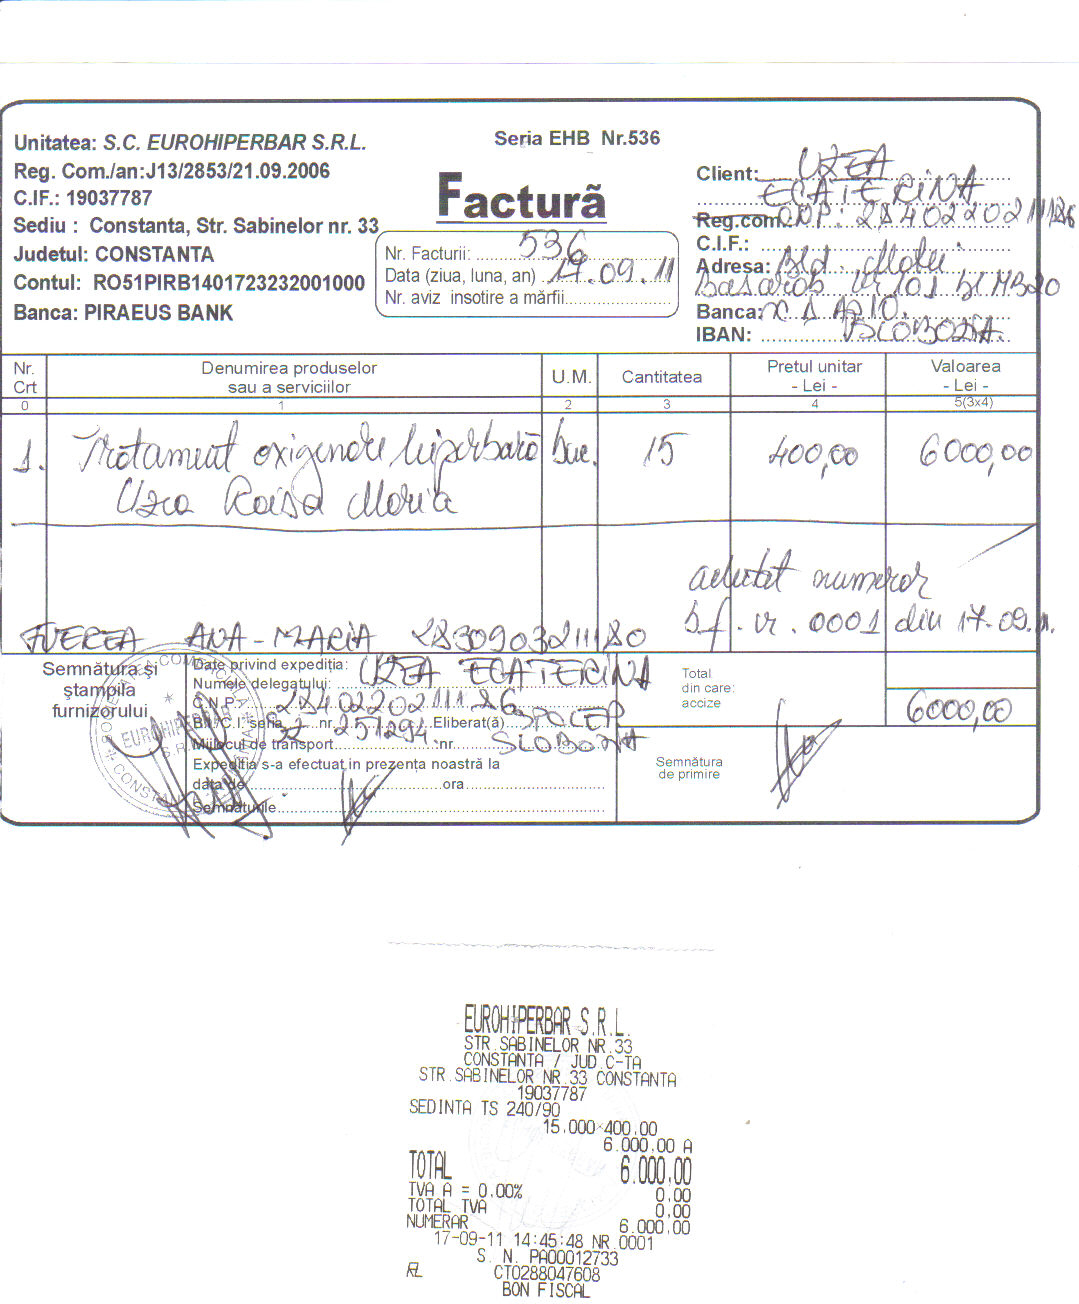 Unitatea: S.C. EUROHIPERBAR S.R.L.
Reg. Com./an:J13/2853/21.09.2006
C.IF.: 19037787
Sediu : Constanta, Str. Sabinelor nr. 33
Judetul: CONSTANTA
Contul: RO51PIRB1401723232001000
Banca: PIRAEUS BANK
Seria EHB Nr.536
Factură
Nr. Facturii: 536
Data (ziua, luna, an) 17.09.11
Nr. aviz insotire a mărfii
Client: UZEA
ECATERINA
Reg.com. CNP: 2840220211186
C.I.F.:
Adresa: Bld. Matei
Basarab nr 101 bl MB20
Banca: sc 1 AP 10.
IBAN: SLOBOZIA.
Nr. Crt
Denumirea produselor
sau a serviciilor
U.M.
Cantitatea
Pretul unitar
- Lei -
Valoarea
- Lei -
0 1 2 3 4 5(3x4)
1. Tratament oxigenare hiperbară buc. 15 400,00 6000,00
Uzea Raisa Maria
achitat numerar
b.f. nr. 0001 din 17.09.11.
FUEREA ANA-MARIA 2830903211180
Semnătura și
ștampila
furnizorului
Date privind expediția: UZEA ECATERINA
Numele delegatului:
C.N.P.
B.I./C.I. seria nr. 251294 Eliberat(ă) SPCLEP
Mijlocul de transport nr. SLOBOZIA
Expediția s-a efectuat in prezența noastră la
data de ora
Semnăturile
Total
din care:
accize
6000,00
Semnătura
de primire
EUROHIPERBAR S.R.L.
STR.SABINELOR NR.33
CONSTANTA / JUD.C-TA
STR.SABINELOR NR.33 CONSTANTA
19037787
SEDINTA TS 240/90
15.000×400.00
6.000.00 A
TOTAL 6.000,00
TVA A = 0.00% 0.00
TOTAL TVA 0.00
NUMERAR 6.000,00
17-09-11 14:45:48 NR.0001
S. N. PA00012733
CT0288047608
BON FISCAL